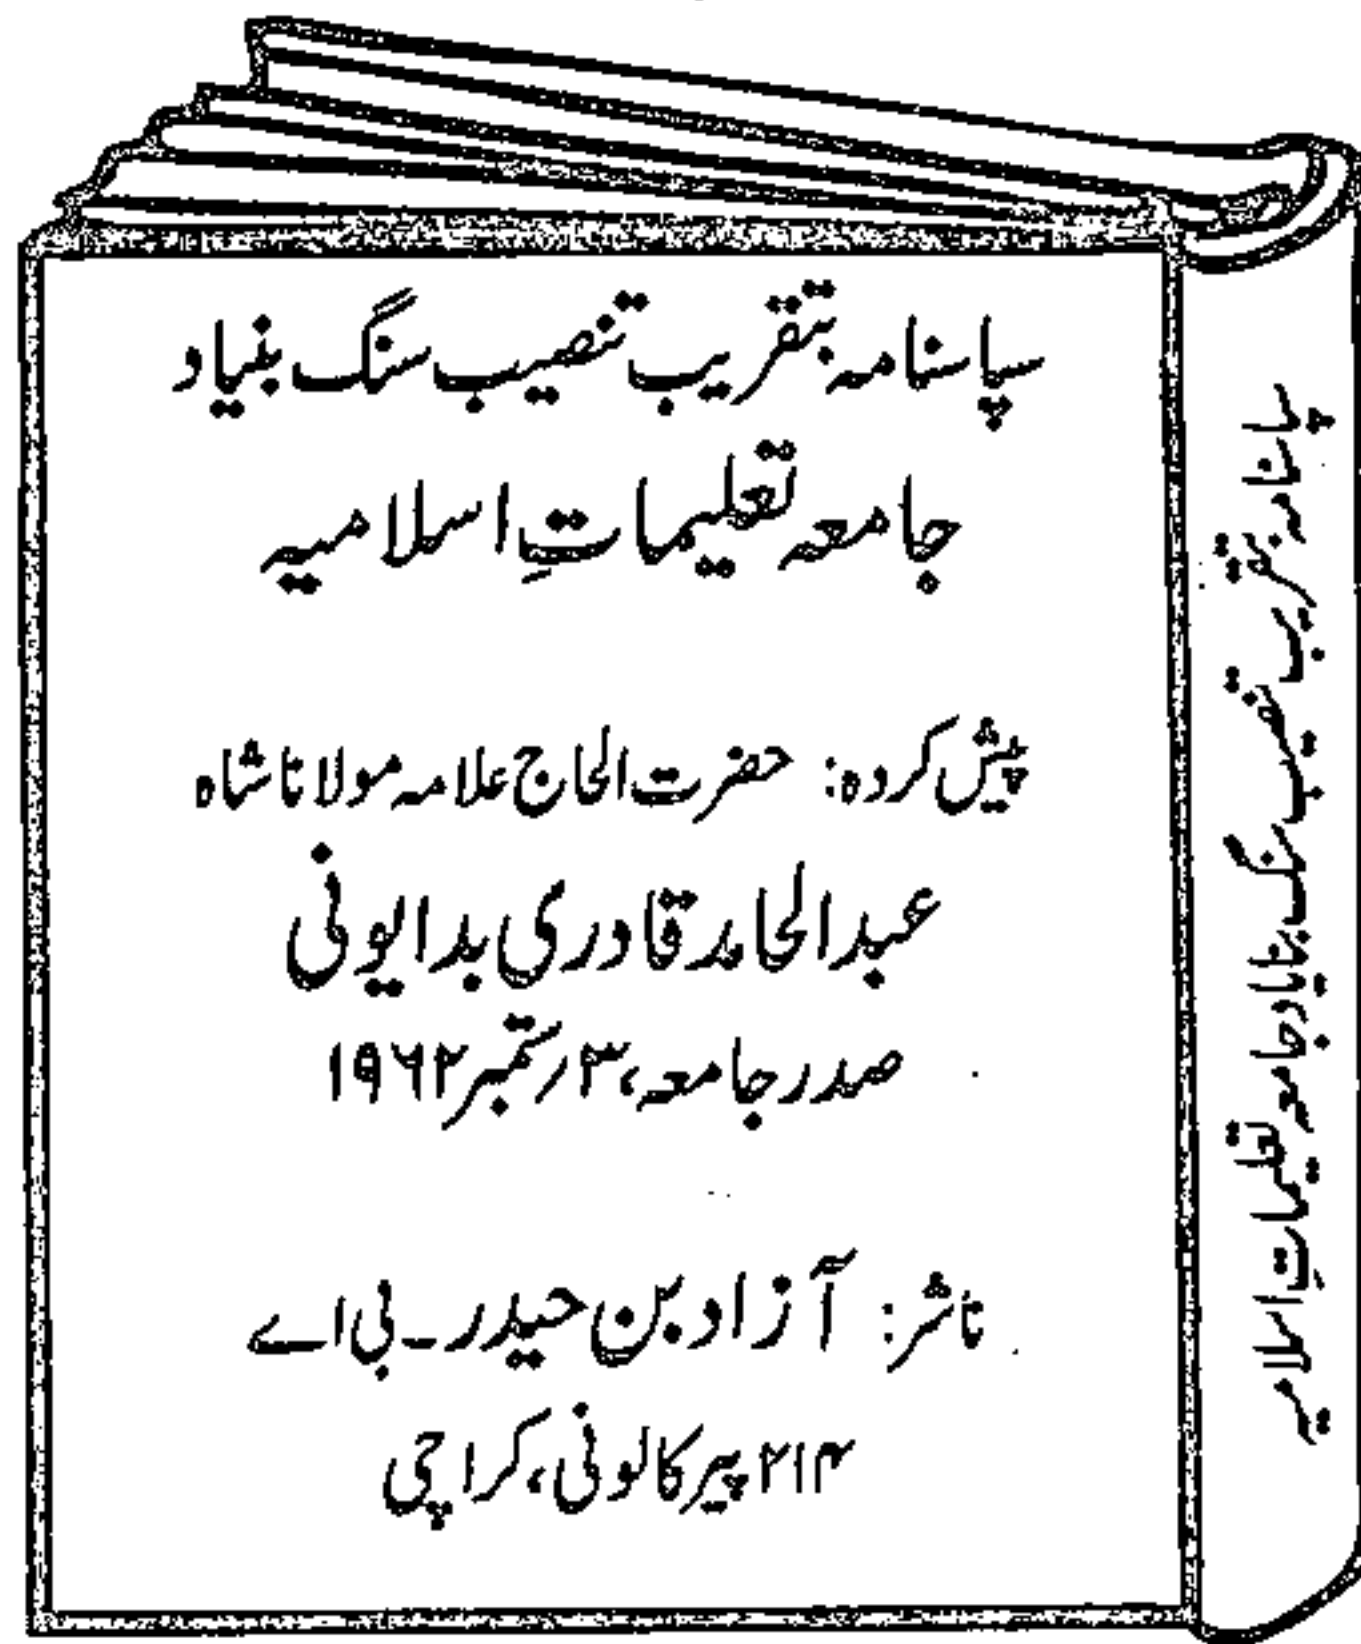 سپاسنامہ بتقریب تنصیب سنگ بنیاد
جامعہ تعلیماتِ اسلامیہ
پیش کردہ: حضرت الحاج علامہ مولانا شاہ
عبدالحامد قادری بدایونی
صدر جامعہ، ۳؍ستمبر ۱۹۶۲
ناشر: آزاد بن حیدر۔ بی اے
۲۱۴ پیر کالونی، کراچی
سپاسنامہ بتقریب تنصیب سنگ بنیاد جامعہ تعلیماتِ اسلامیہ